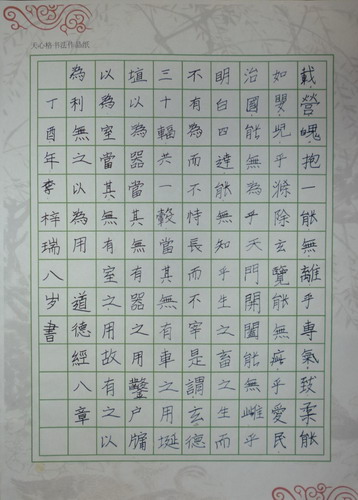 天心格书法作品纸
載營魄抱一能無離乎專氣致柔能
如嬰兒乎滌除玄覽能無疵乎愛民
治國能無為乎天門開闔能無雌乎
明白四達能無知乎生之畜之生而
不有為而不恃長而不宰是謂玄德
三十輻共一轂當其無有車之用埏
埴以為器當其無有器之用鑿户牖
以為室當其無有室之用故有之以
為利無之以為用 道德經八章
丁酉年李梓瑞八岁書